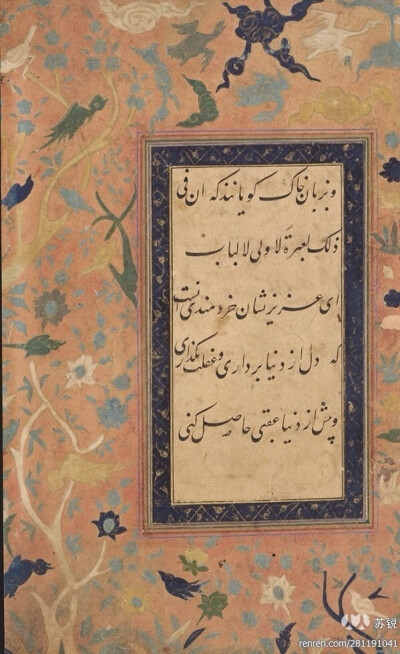 و بزبان خاک کویانند که ان فی
ذلک لعبرة لاولی لالباب
ای عزیز نشان خردمندی آنست
که دل از دنیا برداری و غفلت بگذاری
و پیش از دنیا عقبی حاصل کنی
苏锐
renren.com/281191041